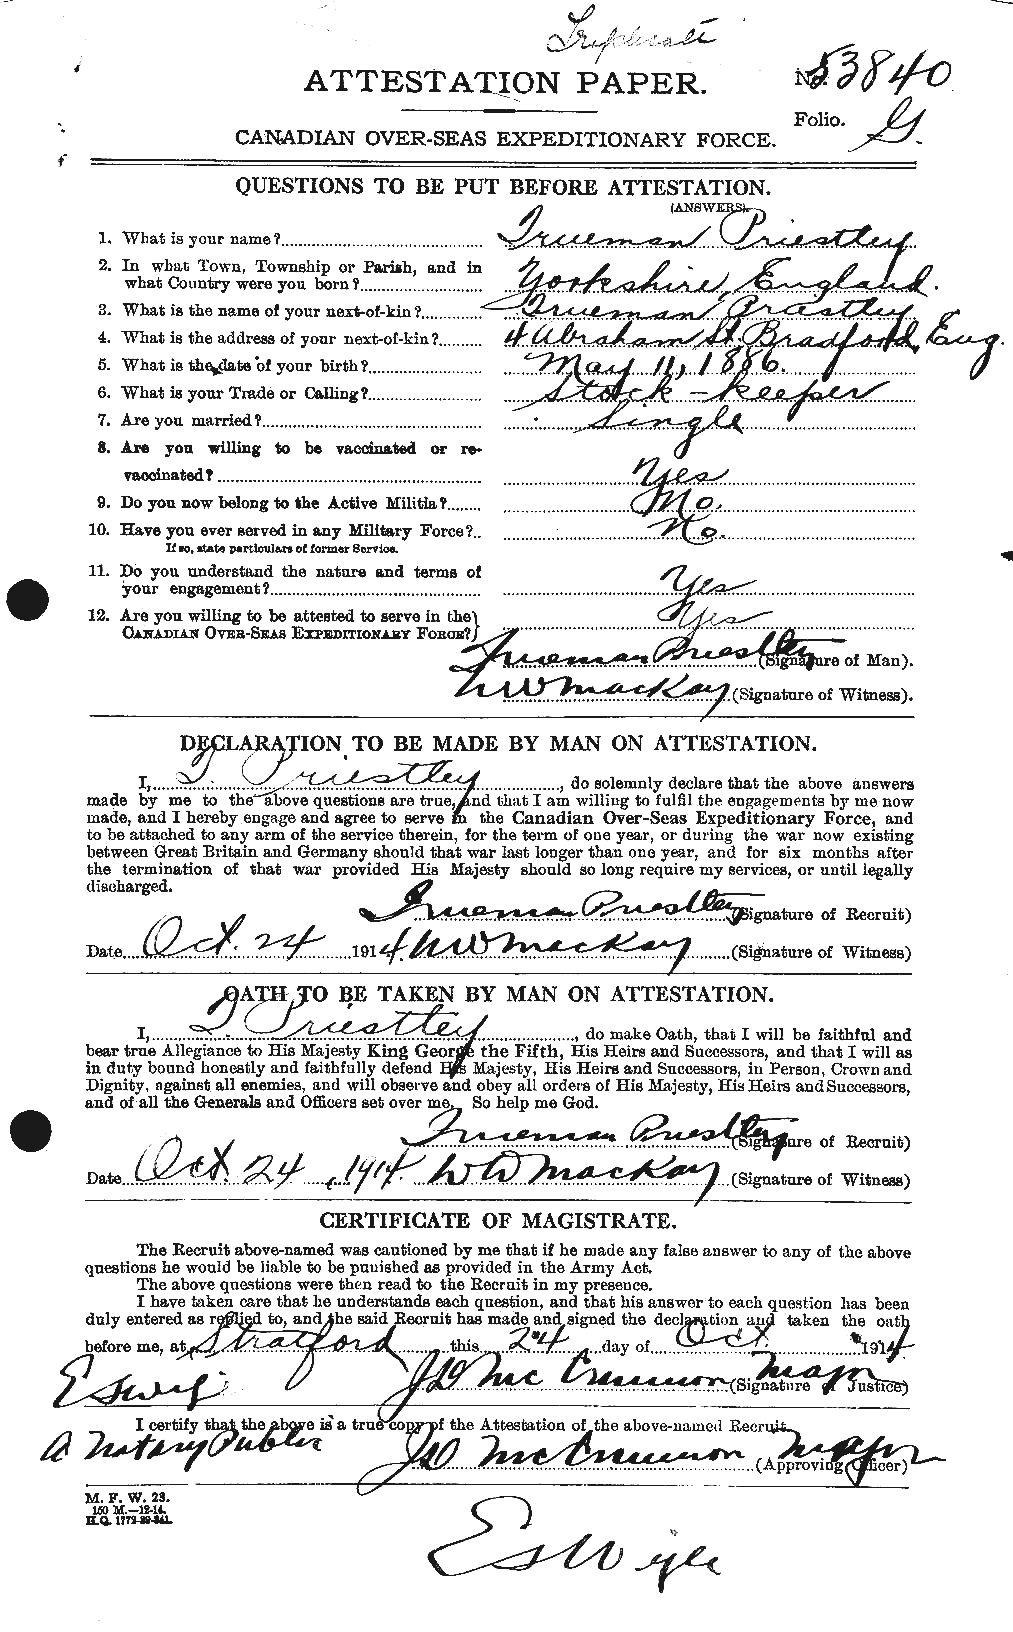 Triplicate
ATTESTATION PAPER.
No. 53840
Folio. G.
CANADIAN OVER-SEAS EXPEDITIONARY FORCE.
QUESTIONS TO BE PUT BEFORE ATTESTATION.
(ANSWERS).
1. What is your name? Trueman Priestley
2. In what Town, Township or Parish, and in
what Country were you born? Yorkshire, England.
3. What is the name of your next-of-kin? Trueman Prastley
4. What is the address of your next-of-kin? 4 Abraham St. Bradford, Eng.
5. What is the date of your birth? May 11, 1886.
6. What is your Trade or Calling? Stock-keeper
7. Are you married? Single
8. Are you willing to be vaccinated or re-
vaccinated? Yes
9. Do you now belong to the Active Militia? No.
10. Have you ever served in any Military Force? No.
If so, state particulars of former Service.
11. Do you understand the nature and terms of
your engagement? Yes
12. Are you willing to be attested to serve in the
CANADIAN OVER-SEAS EXPEDITIONARY FORCE? Yes
Trueman Priestley (Signature of Man).
W MacKay (Signature of Witness).
DECLARATION TO BE MADE BY MAN ON ATTESTATION.
I, T. Priestley, do solemnly declare that the above answers
made by me to the above questions are true, and that I am willing to fulfil the engagements by me now
made, and I hereby engage and agree to serve in the Canadian Over-Seas Expeditionary Force, and
to be attached to any arm of the service therein, for the term of one year, or during the war now existing
between Great Britain and Germany should that war last longer than one year, and for six months after
the termination of that war provided His Majesty should so long require my services, or until legally
discharged.
Trueman Priestley (Signature of Recruit)
Date Oct. 24 1914. W MacKay (Signature of Witness)
OATH TO BE TAKEN BY MAN ON ATTESTATION.
I, T. Priestley, do make Oath, that I will be faithful and
bear true Allegiance to His Majesty King George the Fifth, His Heirs and Successors, and that I will as
in duty bound honestly and faithfully defend His Majesty, His Heirs and Successors, in Person, Crown and
Dignity, against all enemies, and will observe and obey all orders of His Majesty, His Heirs and Successors,
and of all the Generals and Officers set over me. So help me God.
Trueman Priestley (Signature of Recruit)
Date Oct. 24, 1914. W MacKay (Signature of Witness)
CERTIFICATE OF MAGISTRATE.
The Recruit above-named was cautioned by me that if he made any false answer to any of the above
questions he would be liable to be punished as provided in the Army Act.
The above questions were then read to the Recruit in my presence.
I have taken care that he understands each question, and that his answer to each question has been
duly entered as replied to, and the said Recruit has made and signed the declaration and taken the oath
before me, at Stratford this 24 day of Oct 1914
J D McCrimmon Major (Signature of Justice)
I certify that the above is a true copy of the Attestation of the above-named Recruit.
A Notary Public J D McCrimmon Major (Approving Officer)
M. F. W. 23.
150 M.—12-14.
H.Q. 1772-39-841.
E S Wyle